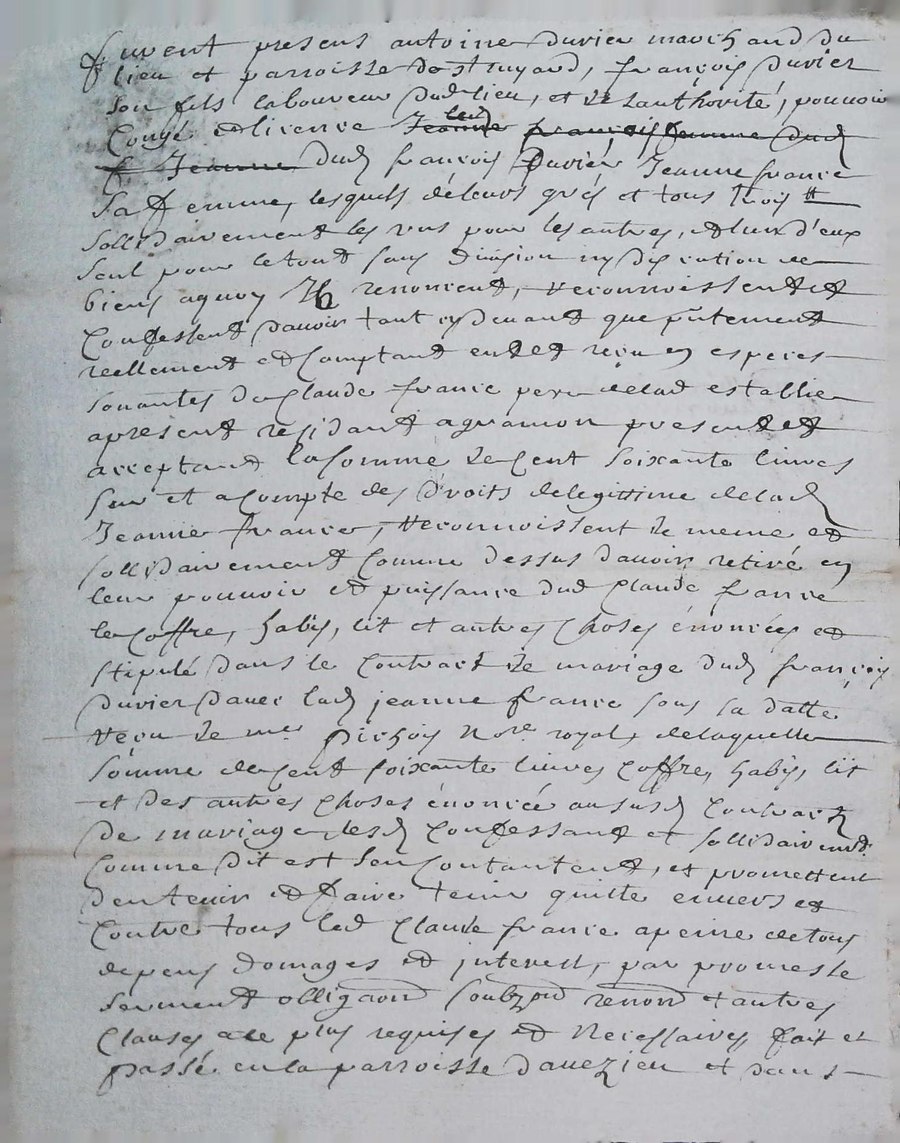 furent presens antoine Duvier marchand du
lieu et parroisse de st uyard, françois Duvier
son fils laboureur dud lieu, et de l'authorité, pouvoir
Congé et licence Jeanne led françois femme dud
Jeanne Dud françois Duvier Jeanne france
sa femme, lesquels de leurs grés et tous trois
sollidairement les uns pour les autres, et l'un d'eux
seul pour le tout sans division ny discution de
biens aquoy Ils renoncent, reconnoissent et
Confessent d'avoir tant cydevant que pntement
reellement et Comptant eu et reçu en especes
sonantes de Claude france pere de lad establie
apresent residant aguamon present et
acceptant la somme de Cent soixante livres
sur et a Compte des Droits de legitime de lad
Jeanne france, reconnoissent de meme et
sollidairement Comme dessus d'avoir retiré en
leur pouvoir et puissance dud Claude france
le Coffre, habis, lit et autres Choses énoncées et
stipulé dans le Contract de mariage dud françois
Duvier d'avec lad jeanne france sous sa datte
reçu de me pichon nore royal, de laquelle
somme de Cent soixante livres Coffre, habis, lit
et des autres Choses énoncée aususd Contract
de mariage lesd Confessant et sollidairemt
Comme dit est s'en Contantent, et promettent
d'en tenir et faire tenir quitte envers et
Contre tous led Claude france apeine de tous
depens domages et interest, par promesse
serment obligaon soubzon renonon et autres
Clauses a ce plus requises et necessaires, fait et
passé en la parroisse d'avezieu et dans